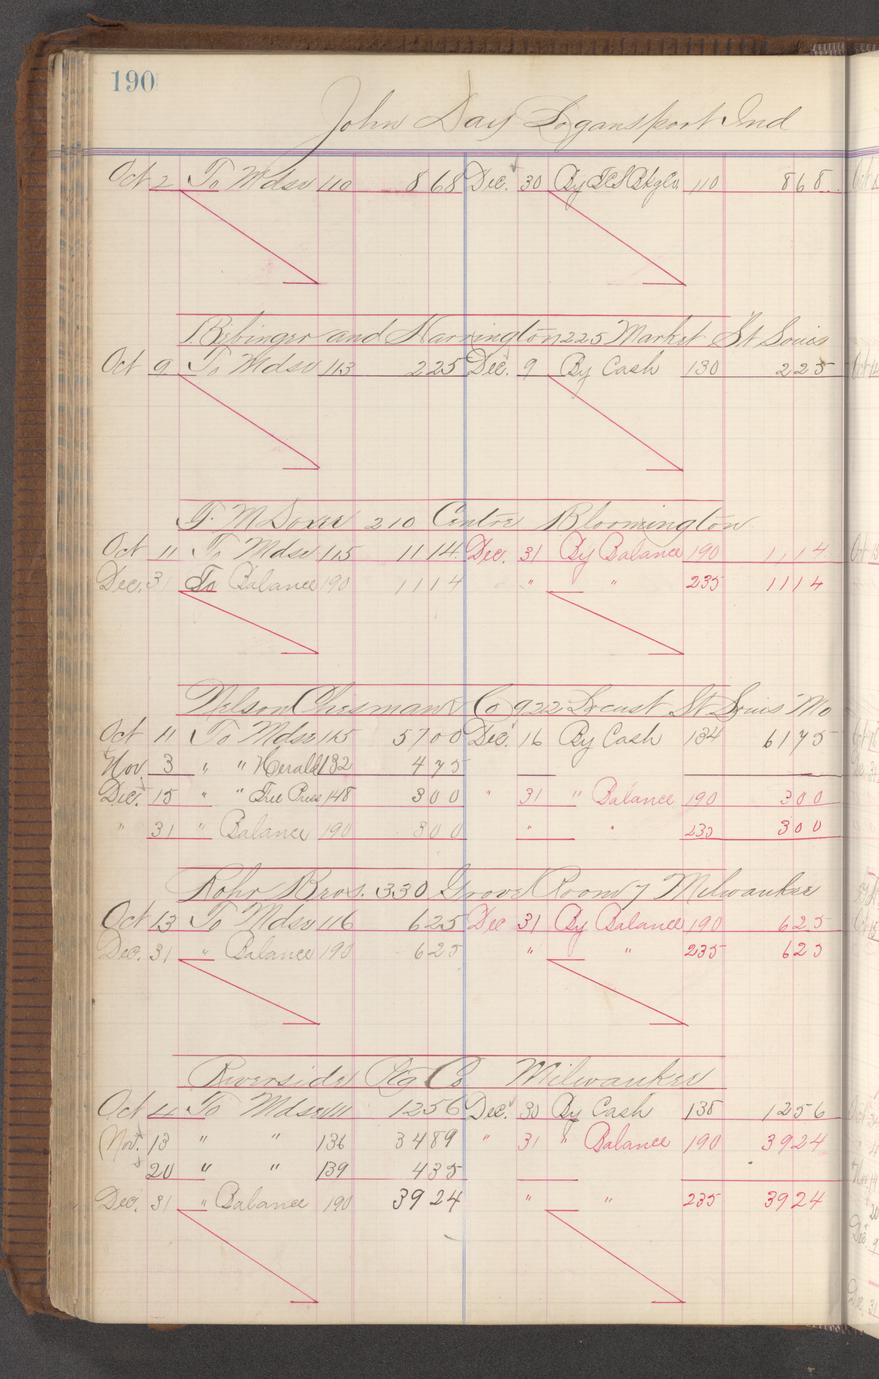 190
John Day Logansport Ind
Oct 2 To Mdse 110 8 68 Dec. 30 By 110 8 68
and Harrington 225 Market St Louis
Oct 9 To Mdse 113 2 25 Dec. 9 By Cash 130 2 25
210 Centre Bloomington
Oct 11 To Mdse 115 11 14 Dec. 31 By Balance 190 11 14
Dec. 31 To Balance 190 11 14 " " 235 11 14
Nelson Chesman & Co 922 Locust St Louis Mo
Oct 11 To Mdse 115 57 00 Dec. 16 By Cash 134 61 75
Nov. 3 " " Herald 132 4 75
Dec. 15 " " Free Press 148 3 00 " 31 " Balance 190 3 00
" 31 " Balance 190 3 00 " " 235 3 00
Rohr Bros. 330 Grove Room 7 Milwaukee
Oct 13 To Mdse 116 6 25 Dec 31 By Balance 190 6 25
Dec. 31 " Balance 190 6 25 " " 235 6 25
Riverside Co Milwaukee
Oct 4 To Mdse 111 12 56 Dec. 30 By Cash 138 12 56
Nov. 13 " " 136 34 89 " 31 " Balance 190 39 24
20 " " 139 4 35
Dec. 31 " Balance 190 39 24 " " 235 39 24